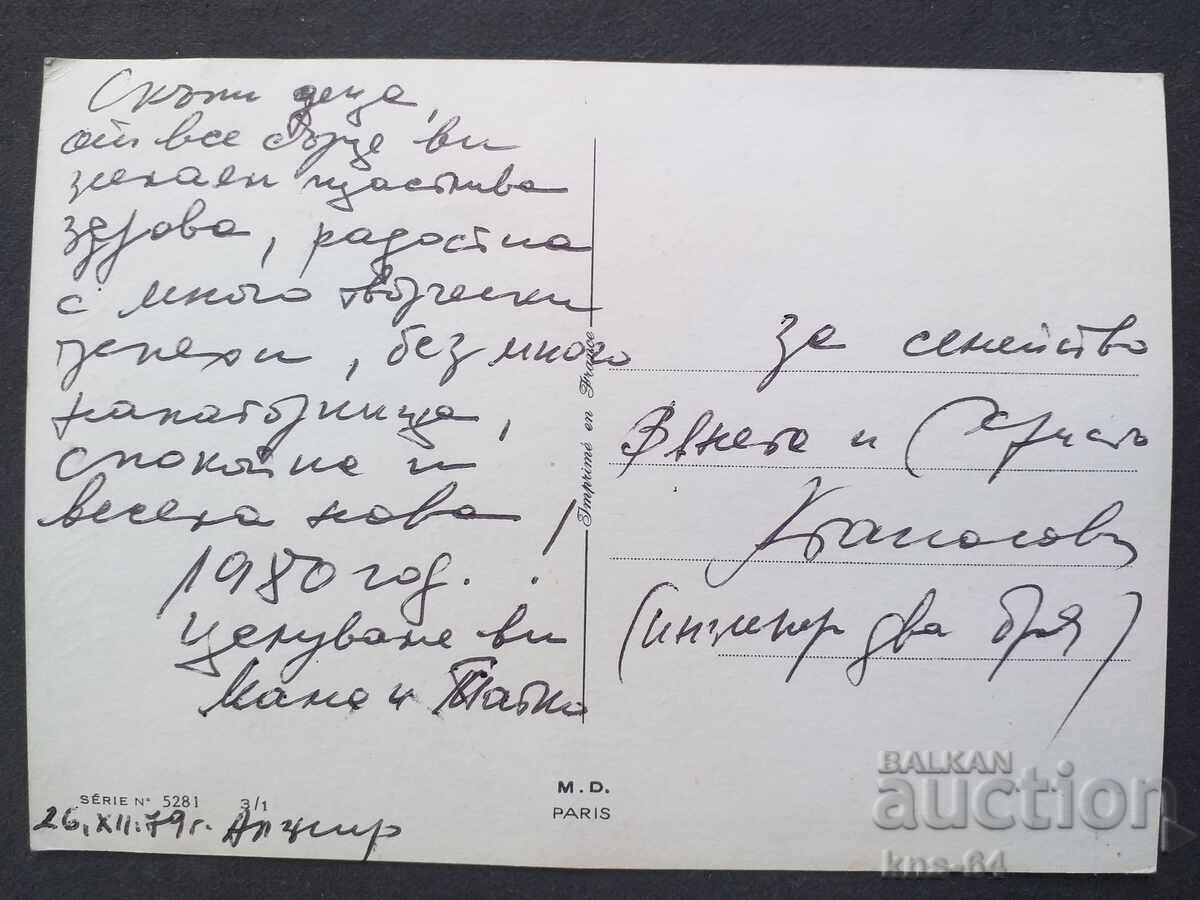 Скъпи деца,
от все сърце ви
желаем щастлива
здрава, радостна
с много творчески
успехи, без много
спокойна и
весела нова
1980 год. !
Целуваме ви
Мама и Татко
за семейство
и Христо
(инженер два броя)
Imprimé en France
M.D.
PARIS
SÉRIE N° 5281 3/1
26.XII.79 г. Алжир
BALKAN
auction
kns-64